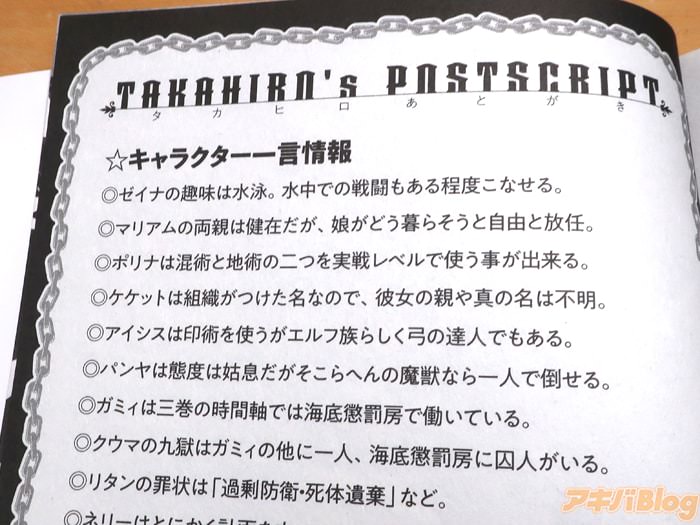 TAKAHIRO's POSTSCRIPT
タカヒロあとがき
☆キャラクター一言情報
◎ゼイナの趣味は水泳。水中での戦闘もある程度こなせる。
◎マリアムの両親は健在だが、娘がどう暮らそうと自由と放任。
◎ポリナは混術と地術の二つを実戦レベルで使う事が出来る。
◎ケケットは組織がつけた名なので、彼女の親や真の名は不明。
◎アイシスは印術を使うがエルフ族らしく弓の達人でもある。
◎パンヤは態度は姑息だがそこらへんの魔獣なら一人で倒せる。
◎ガミィは三巻の時間軸では海底懲罰房で働いている。
◎クウマの九獄はガミィの他に一人、海底懲罰房に囚人がいる。
◎リタンの罪状は「過剰防衛・死体遺棄」など。
◎ネリーはとにかく計画を
アキバBlog